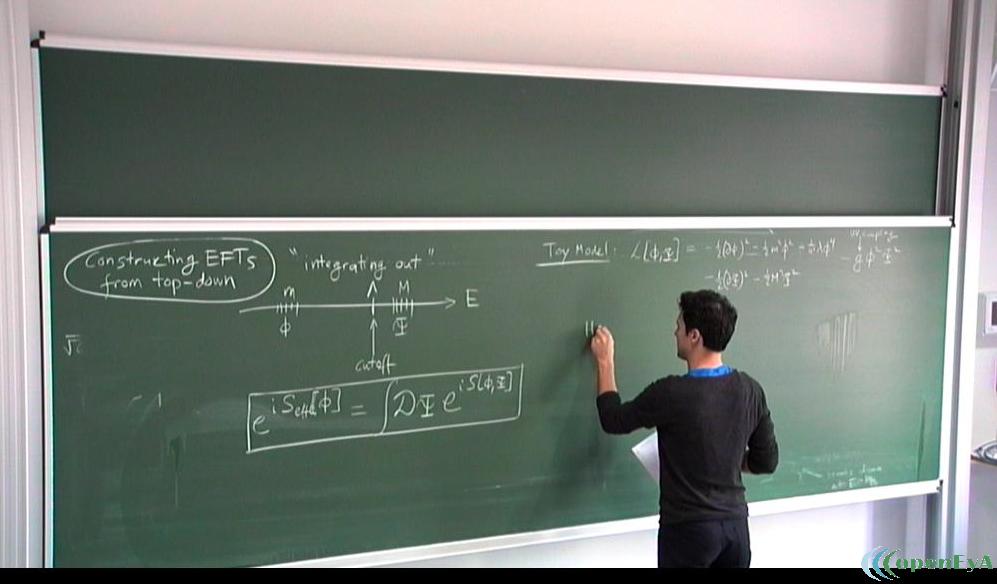 Constructing EFTs
from top-down
"integrating out"
m
Λ
M
E
ϕ
Ψ
cutoff
e^{i S_eff[ϕ]} = ∫ DΨ e^{i S[ϕ,Ψ]}
Toy Model: L[ϕ,Ψ] = -½(∂ϕ)² - ½m²ϕ² - λϕ⁴ - g ϕ²Ψ²
-½(∂Ψ)² - ½M²Ψ²
openEyA